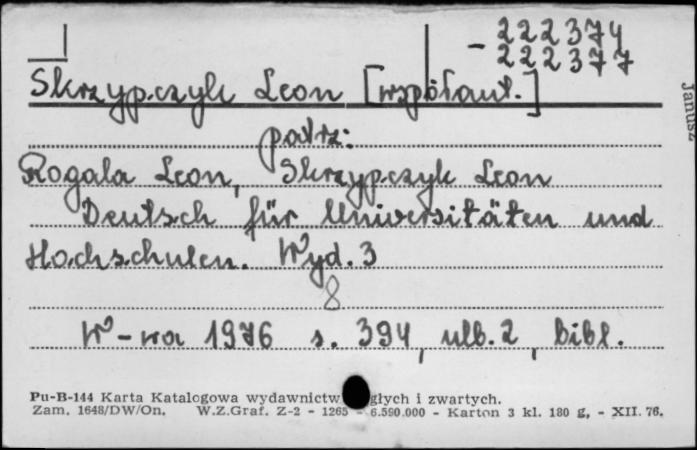 - 222374
222377
Skrzypczyk Leon [współaut.]
patrz:
Rogala Leon, Skrzypczyk Leon
Deutsch für Universitäten und
Hochschulen. Wyd. 3
8
W-wa 1976 s. 394, nlb. 2, bibl.
Pu-B-144 Karta Katalogowa wydawnictw głych i zwartych.
Zam. 1648/DW/On. W.Z.Graf. Z-2 - 1265 - 6.590.000 - Karton 3 kl. 180 g. - XII. 76.
Janusz